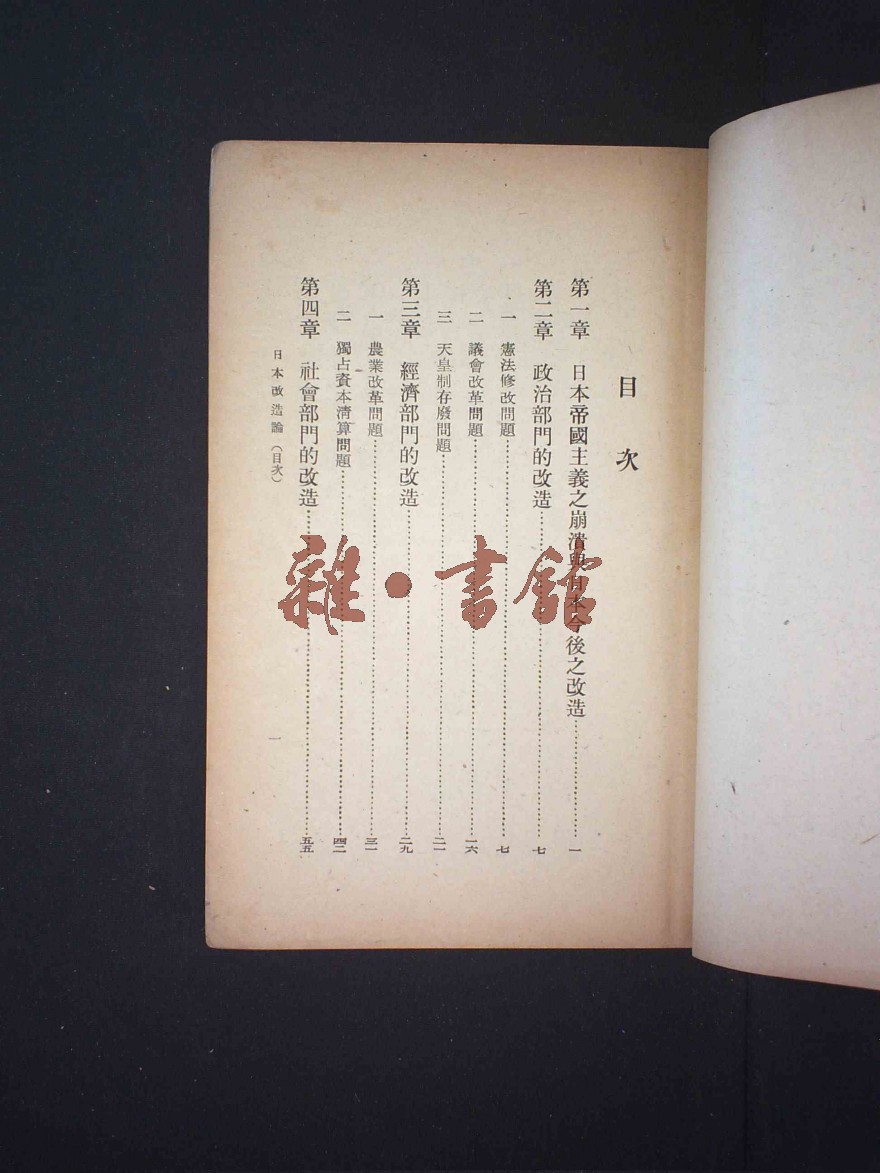 目次
第一章 日本帝國主義之崩潰與日本今後之改造……一
第二章 政治部門的改造……七
一 憲法修改問題……七
二 議會改革問題……一六
三 天皇制存廢問題……二一
第三章 經濟部門的改造……二九
一 農業改革問題……三一
二 獨占資本清算問題……四二
第四章 社會部門的改造……五五
日本改造論(目次)
一
雜·書館